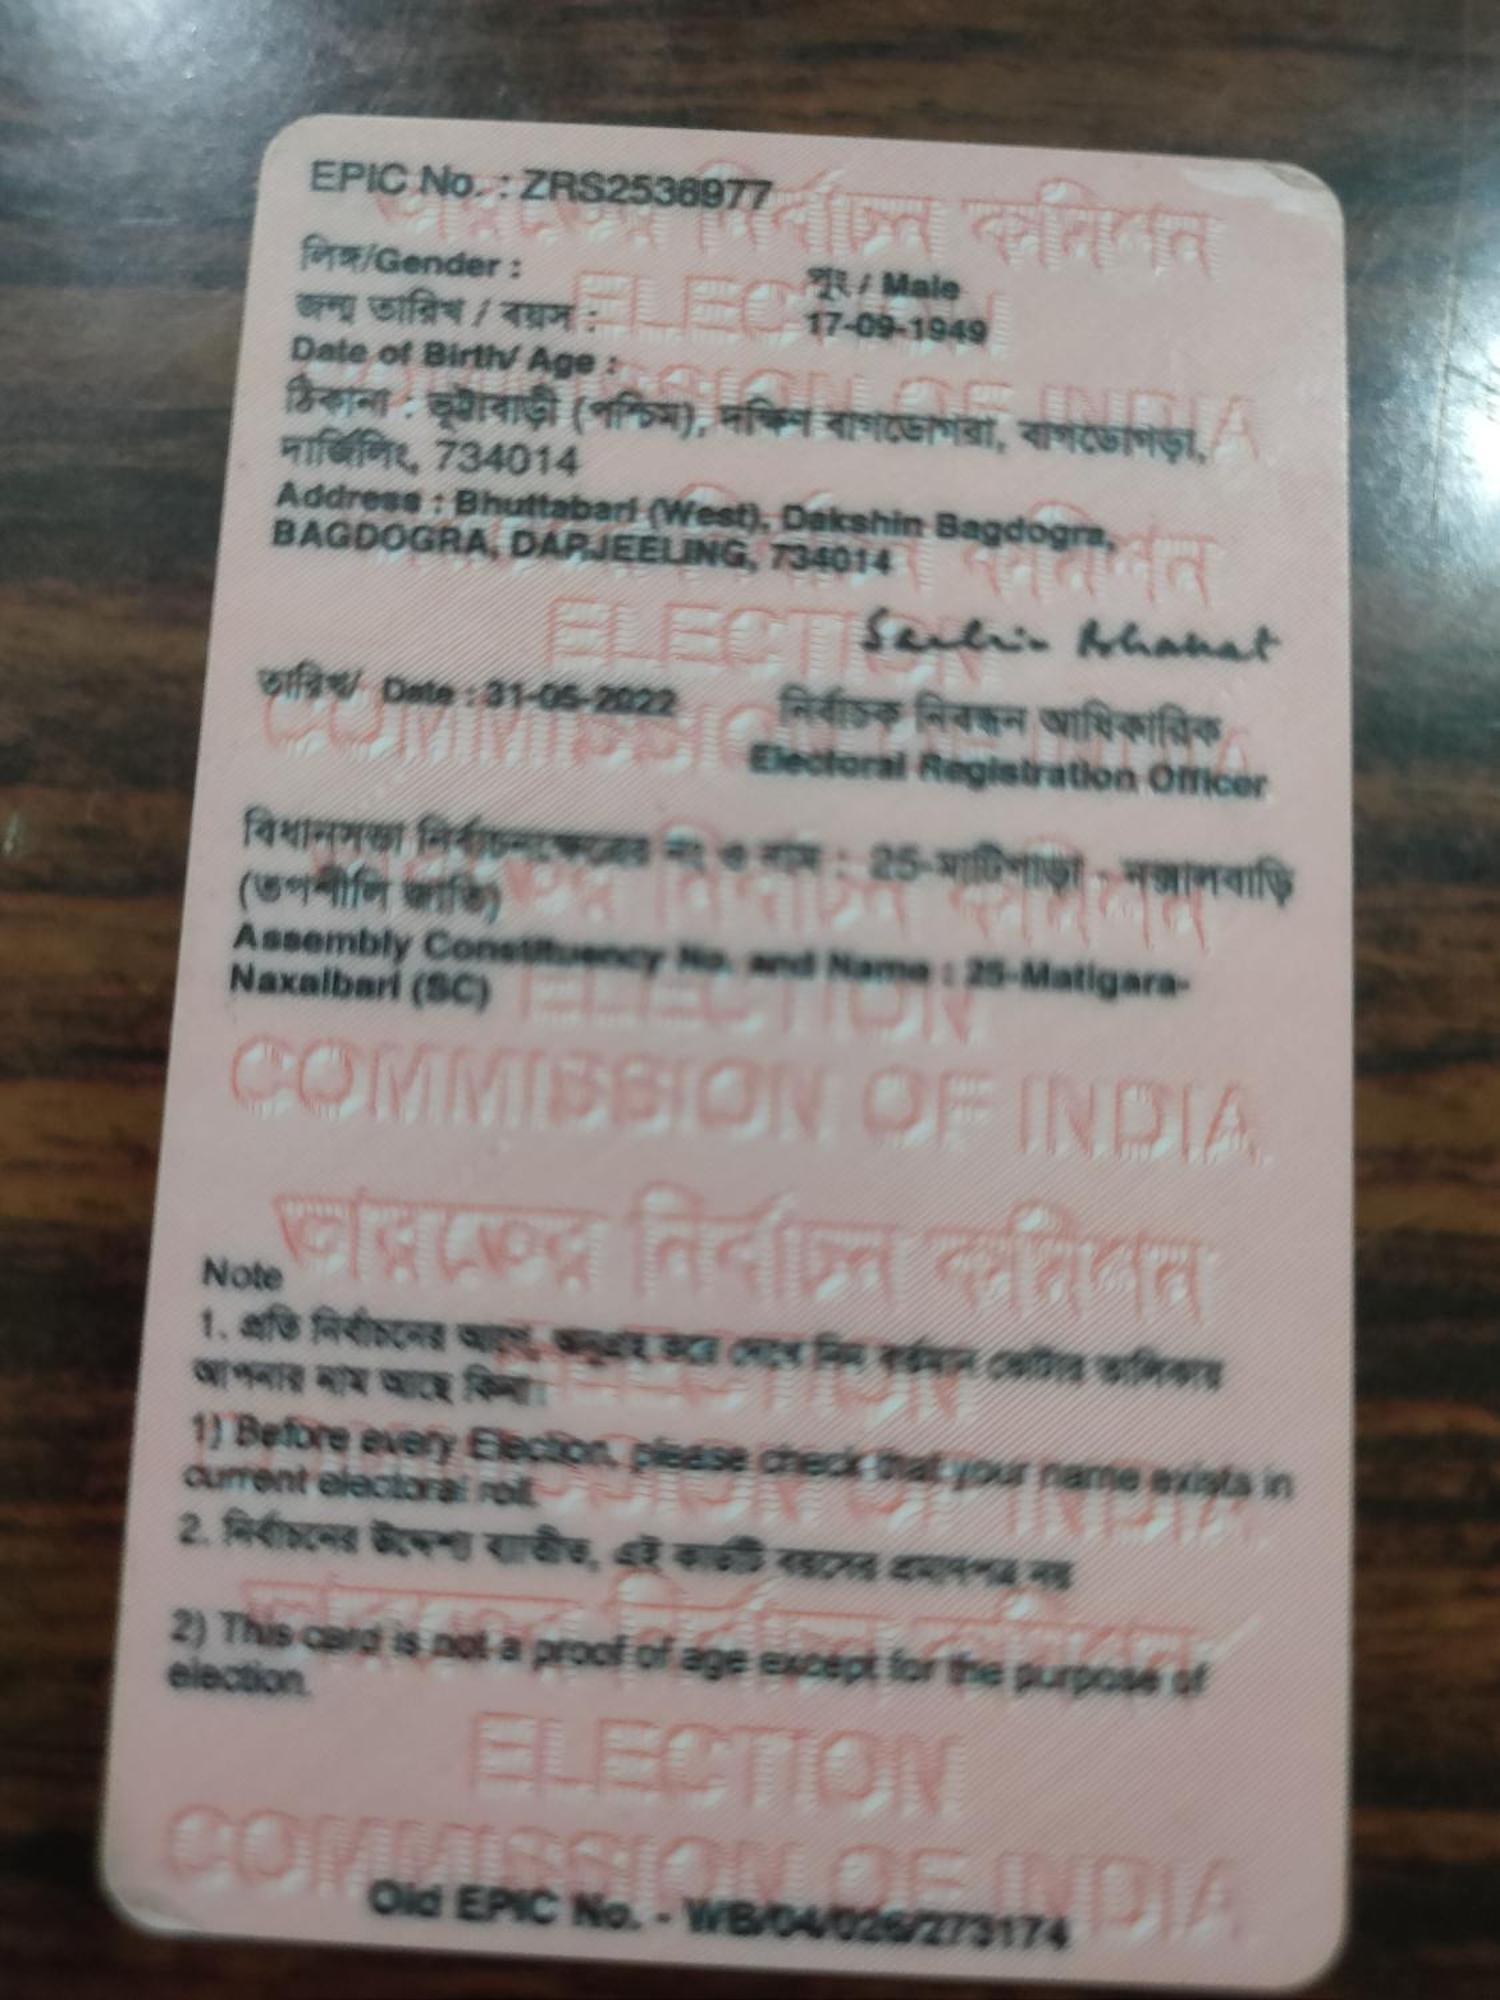 EPIC No. : ZRS2538977
লিঙ্গ/Gender : পুং / Male
জন্ম তারিখ / বয়স : 17-09-1949
Date of Birth/ Age :
ঠিকানা : ভুট্টাবাড়ী (পশ্চিম), দক্ষিন বাগডোগরা, বাগডোগড়া,
দার্জিলিং, 734014
Address : Bhuttabari (West), Dakshin Bagdogra,
BAGDOGRA, DARJEELING, 734014
তারিখ/ Date : 31-05-2022
নির্বাচক নিবন্ধন আধিকারিক
Electoral Registration Officer
বিধানসভা নির্বাচনক্ষেত্রের নং ও নাম : 25-মাটিগাড়া - নক্সালবাড়ি
(তপশীলি জাতি)
Assembly Constituency No. and Name : 25-Matigara-
Naxalbari (SC)
COMMISSION OF INDIA
ভারতের নির্বাচন কমিশন
Note
1. প্রতি নির্বাচনের আগে, অনুগ্রহ করে দেখে নিন বর্তমান ভোটার তালিকায়
আপনার নাম আছে কিনা।
1) Before every Election, please check that your name exists in
current electoral roll.
2. নির্বাচনের উদ্দেশ্য ব্যতীত, এই কার্ডটি বয়সের প্রমাণপত্র নয়
2) This card is not a proof of age except for the purpose of
election.
ELECTION
COMMISSION OF INDIA
Old EPIC No. - WB/04/026/273174